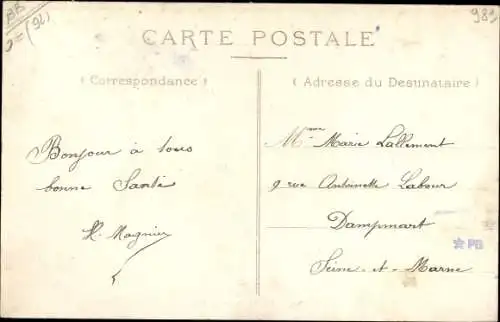 BB
(92)
980
CARTE POSTALE
( Correspondance )
( Adresse du Destinataire )
Bonjour à tous
bonne Santé
H. Magnier
Mme Marie Lallement
9 rue Antoinette Labour
Dampmart
Seine-et-Marne
PB